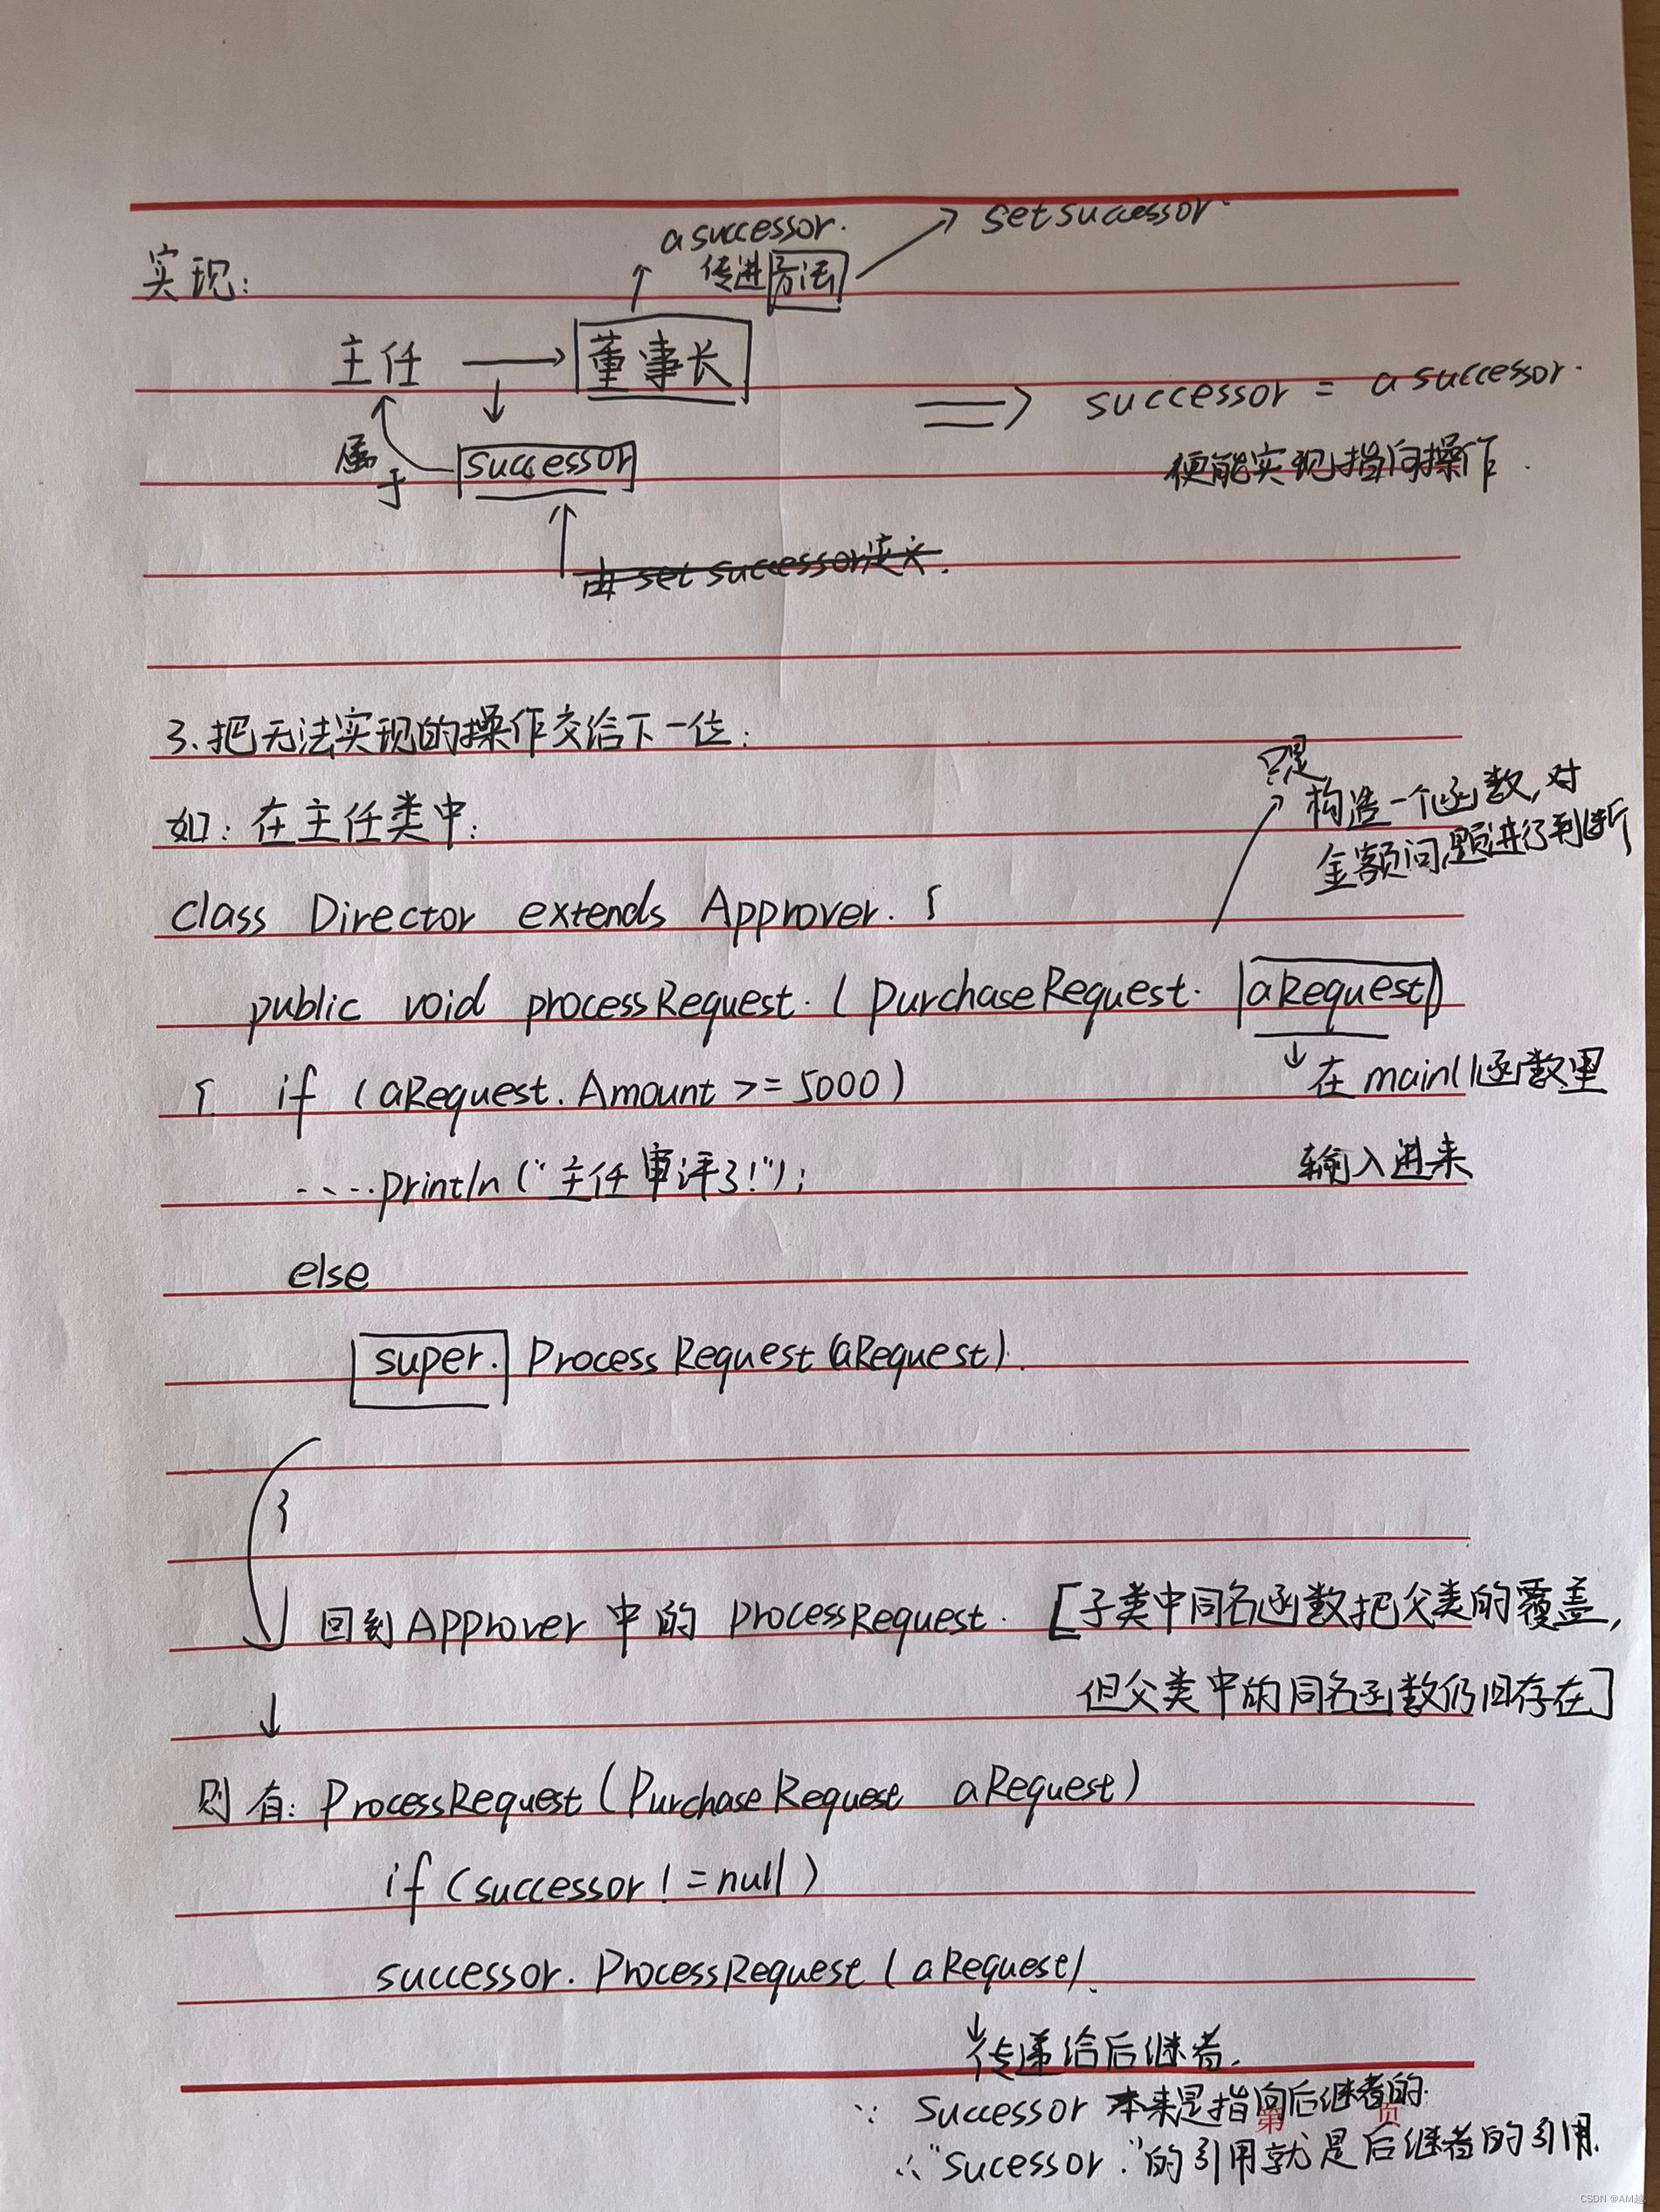 asuccessor.
setsuccessor.
传进方法
实现:
主任
董事长
successor = asuccessor.
属于
successor
便能实现指向操作.
由setsuccessor定义.
3.把无法实现的操作交给下一位:
只是
构造一个函数,对
金额问题进行判断
如:在主任类中:
class Director extends Approver. {
public void processRequest.(PurchaseRequest. aRequest)
{ if (aRequest.Amount >= 5000)
在main()函数里
输入进来
.....println("主任审评了!");
else
super. ProcessRequest(aRequest).
}
回到Approver中的 processRequest. [子类中同名函数把父类的覆盖,
但父类中的同名函数仍旧存在]
则有: ProcessRequest(PurchaseRequest aRequest)
if(successor!=null)
successor.ProcessRequest(aRequest).
传递给后继者.
∵ successor 本来是指向后继者的.
第 页
∴"Sucessor."的引用就是后继者的引用.